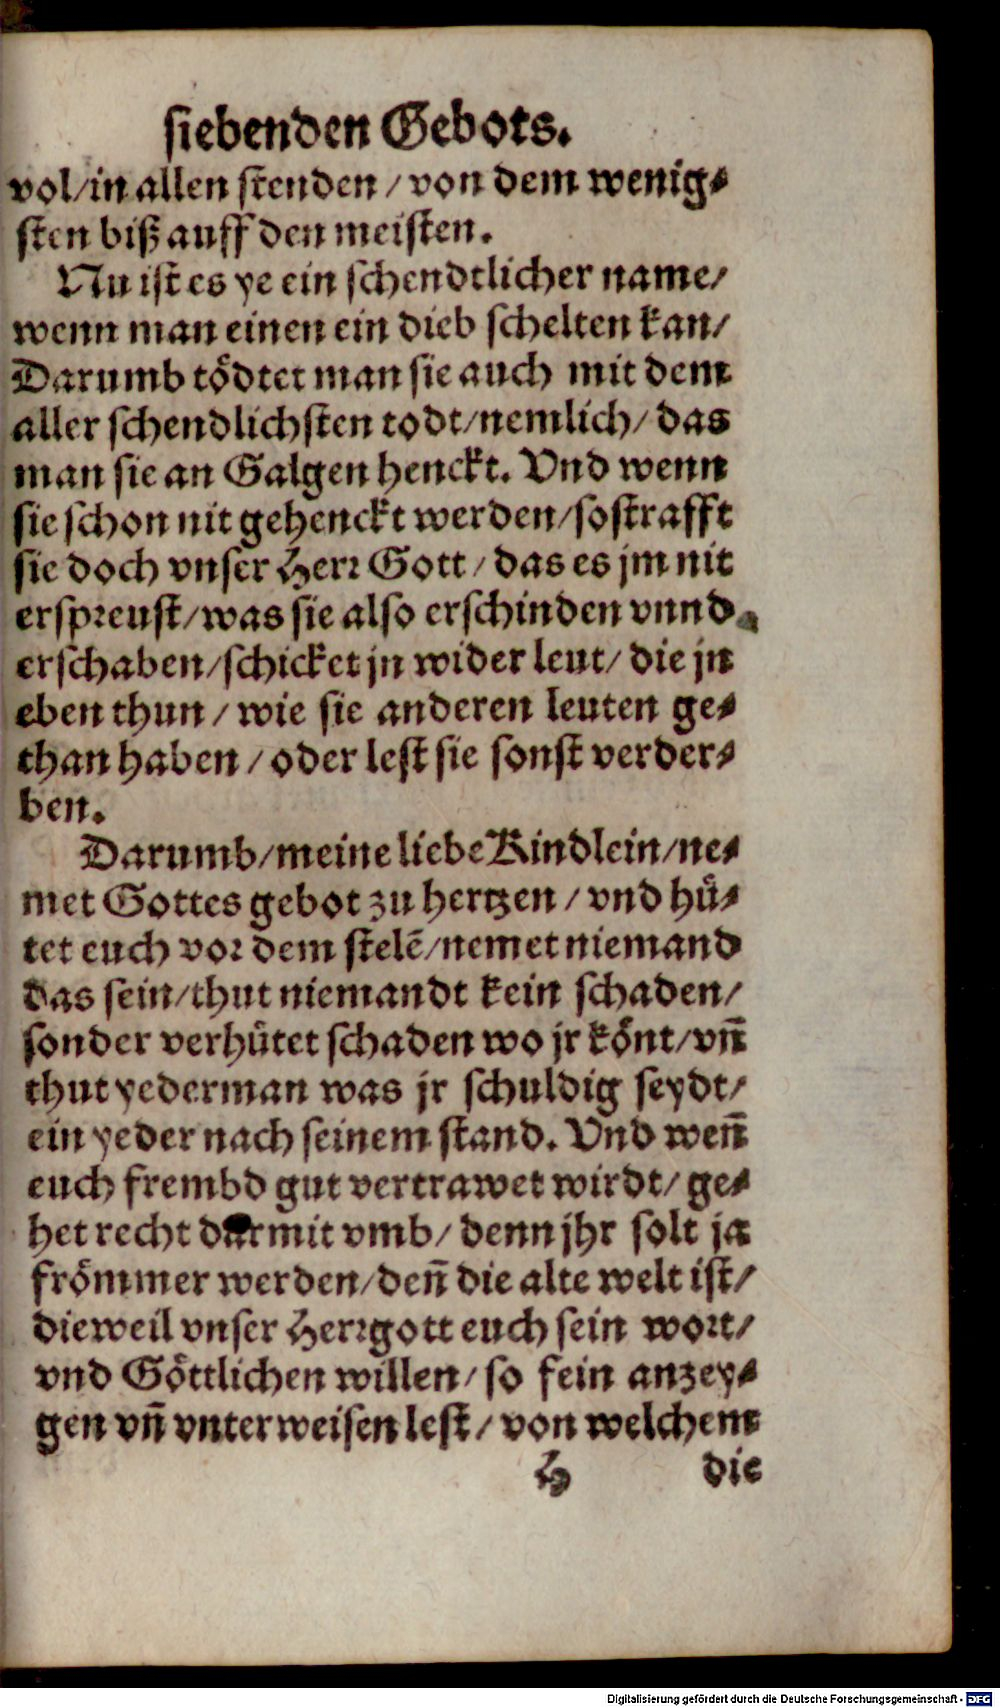 siebenden Gebots.
vol/in allen stenden/von dem wenig-
sten biß auff den meisten.
Nu ist es ye ein schendtlicher name/
wenn man einen ein dieb schelten kan/
Darumb tödtet man sie auch mit dem
aller schendlichsten todt/nemlich/das
man sie an Galgen henckt. Vnd wenn
sie schon nit gehenckt werden/so strafft
sie doch vnser Herr Gott/das es jm nit
erspreust/was sie also erschinden vnnd
erschaben/schicket jn wider leut/die jn
eben thun/wie sie anderen leuten ge-
than haben/oder lest sie sonst verder-
ben.
Darumb/meine liebe Kindlein/ne-
met Gottes gebot zu hertzen/vnd hü-
tet euch vor dem stelē/nemet niemand
das sein/thut niemandt kein schaden/
sonder verhütet schaden wo jr könt/vñ
thut yederman was jr schuldig seydt/
ein yeder nach seinem stand. Vnd weñ
euch frembd gut vertrawet wirdt/ge-
het recht darmit vmb/denn jhr solt ja
frömmer werden/deñ die alte welt ist/
dieweil vnser Herrgott euch sein wort/
vnd Göttlichen willen/so fein anzey-
gen vñ vnterweisen lest/von welchem
H die
Digitalisierung gefördert durch die Deutsche Forschungsgemeinschaft - DFG